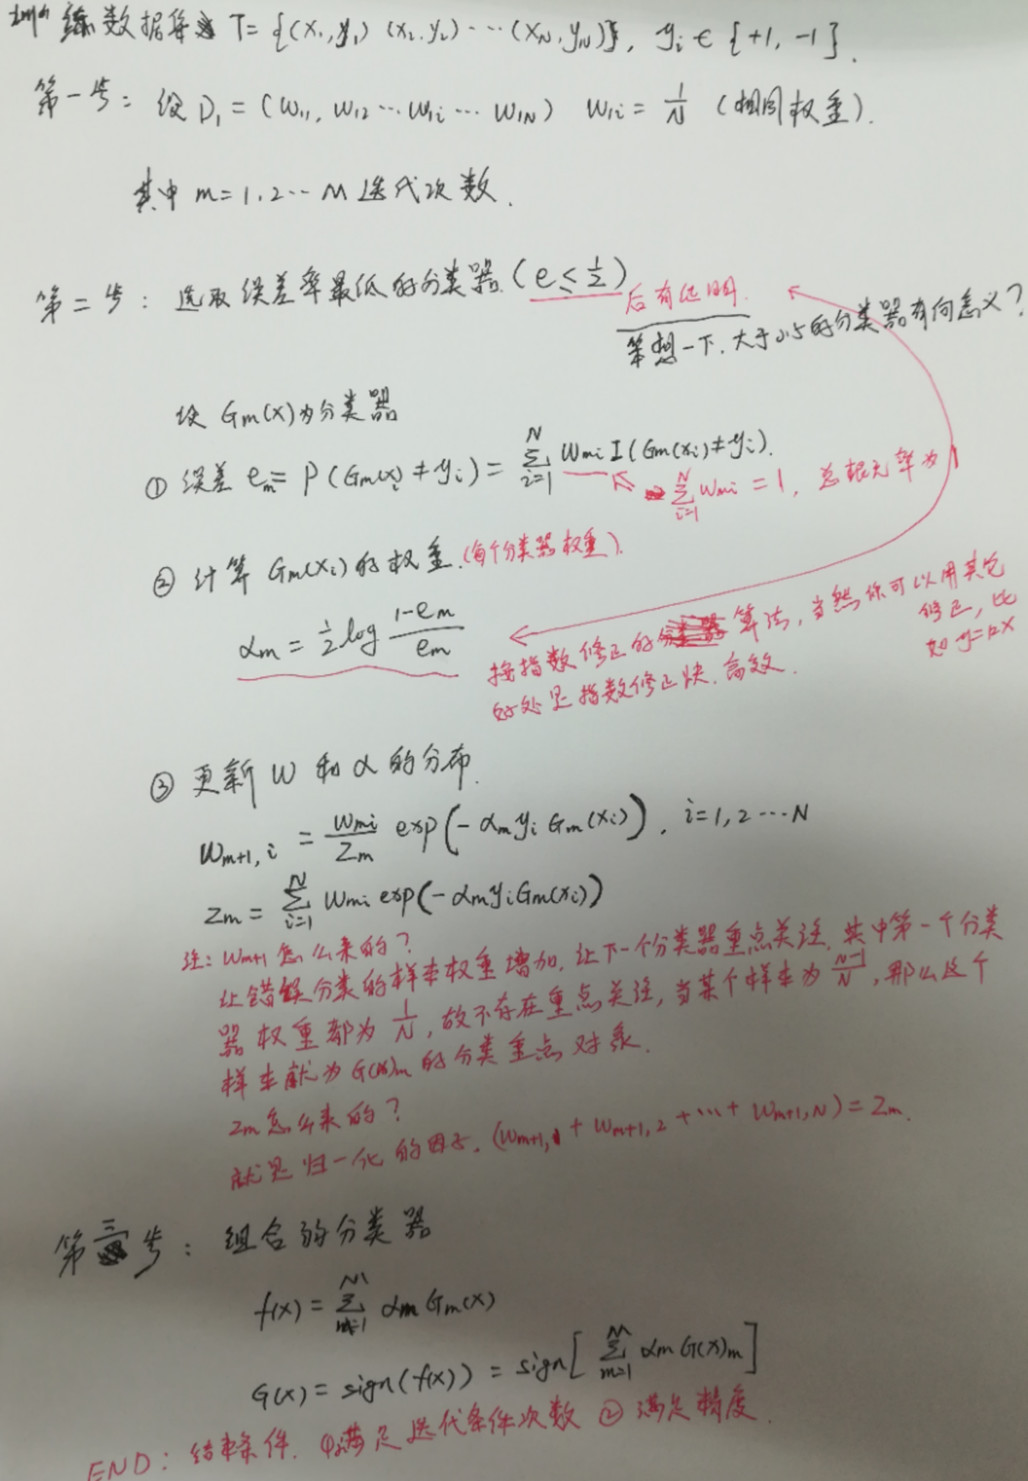 训练数据集 T={(x₁,y₁) (x₂,y₂)⋯(x_N,y_N)}, y_i ∈ {+1, -1}.
第一步: 设 D₁=(w₁₁, w₁₂⋯w₁ᵢ⋯w₁N) w₁ᵢ= 1/N (相同权重).
其中 m=1,2⋯M 迭代次数.
第二步: 选取误差率最低的分类器.(e≤1/2)
后有证明.
想一下.大于0.5的分类器有何意义?
设 Gm(x)为分类器
① 误差 em= P(Gm(xi)≠yi)= Σ_{i=1}^{N} wmi I(Gm(xi)≠yi).
Σ_{i=1}^{N} wmi =1, 总概率为1
② 计算 Gm(xi)的权重.(每个分类器权重).
αm= 1/2 log (1-em)/em
按指数修正的算法,当然你可以用其它
修正,比
如y=
好处是指数修正快.高效.
③ 更新 w 和 α 的分布.
wm+1,i = wmi/Zm exp(-αm yi Gm(xi)), i=1,2⋯N
Zm= Σ_{i=1}^{N} wmi exp(-αm yi Gm(xi))
注: wm+1怎么来的?
让错误分类的样本权重增加.让下一个分类器重点关注.其中第一个分类
器权重都为 1/N,故不存在重点关注,当某个样本为 (N-1)/N,那么这个
样本就为G(x)m的分类重点对象.
Zm怎么来的?
就是归一化的因子.(wm+1,1 + wm+1,2 +⋯+ wm+1,N)=Zm.
第三步: 组合的分类器
f(x)= Σ_{m=1}^{M} αm Gm(x)
G(x)= sign(f(x)) = sign[ Σ_{m=1}^{M} αm G(x)m ]
END: 结束条件. ①满足迭代条件次数 ②满足精度.